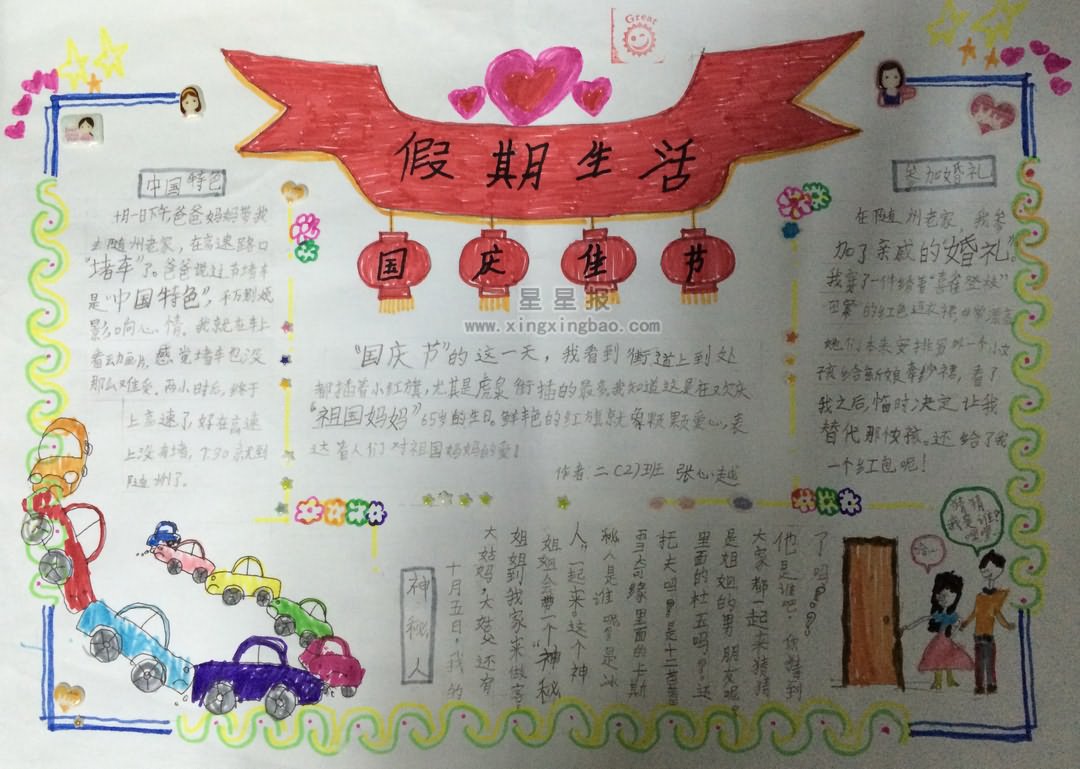 Great
假期生活
国庆佳节
星星报
www.xingxingbao.com
中国特色
十月一日下午爸爸妈妈带我
去随州老家，在高速路口
"堵车"了。爸爸说这有堵车
是"中国特色"，千万别烦
影响心情。我就在车上
看动画片，感觉堵车也没
那么难受。两小时后，终于
上高速了，好在高速
上没有堵，7:30就到
随州了。
"国庆节"的这一天，我看到街道上到处
都插着小红旗，尤其是虎泉街插的最多，我知道这是在欢庆
"祖国妈妈"65岁的生日。鲜艳的红旗就象颗颗爱心，表
达着人们对祖国妈妈的爱！
作者：二（2）班 张心越
参加婚礼
在随州老家，我参
加了亲戚的婚礼。
我穿了一件绣着"喜雀登枝"
图案的红色连衣裙，非常漂亮
她们本来安排另一个小女
孩给新娘牵纱裙，看了
我之后，临时决定让我
替代那女孩。还给了我
一个红包呢！
神秘人
十月五日，我的
大姑妈，大姑父还有
姐姐到我家来做客，
姐姐会带一个"神秘
人"一起来，这个神
秘人是谁呢？是冰
雪奇缘里面的卡斯
托夫吗？是十二生肖
里面的杜五吗？还
是姐姐的男朋友呢？
大家都一起来猜猜
他是谁吧，你猜到
了吗？？？
猜猜
我是谁？
嘿嘿